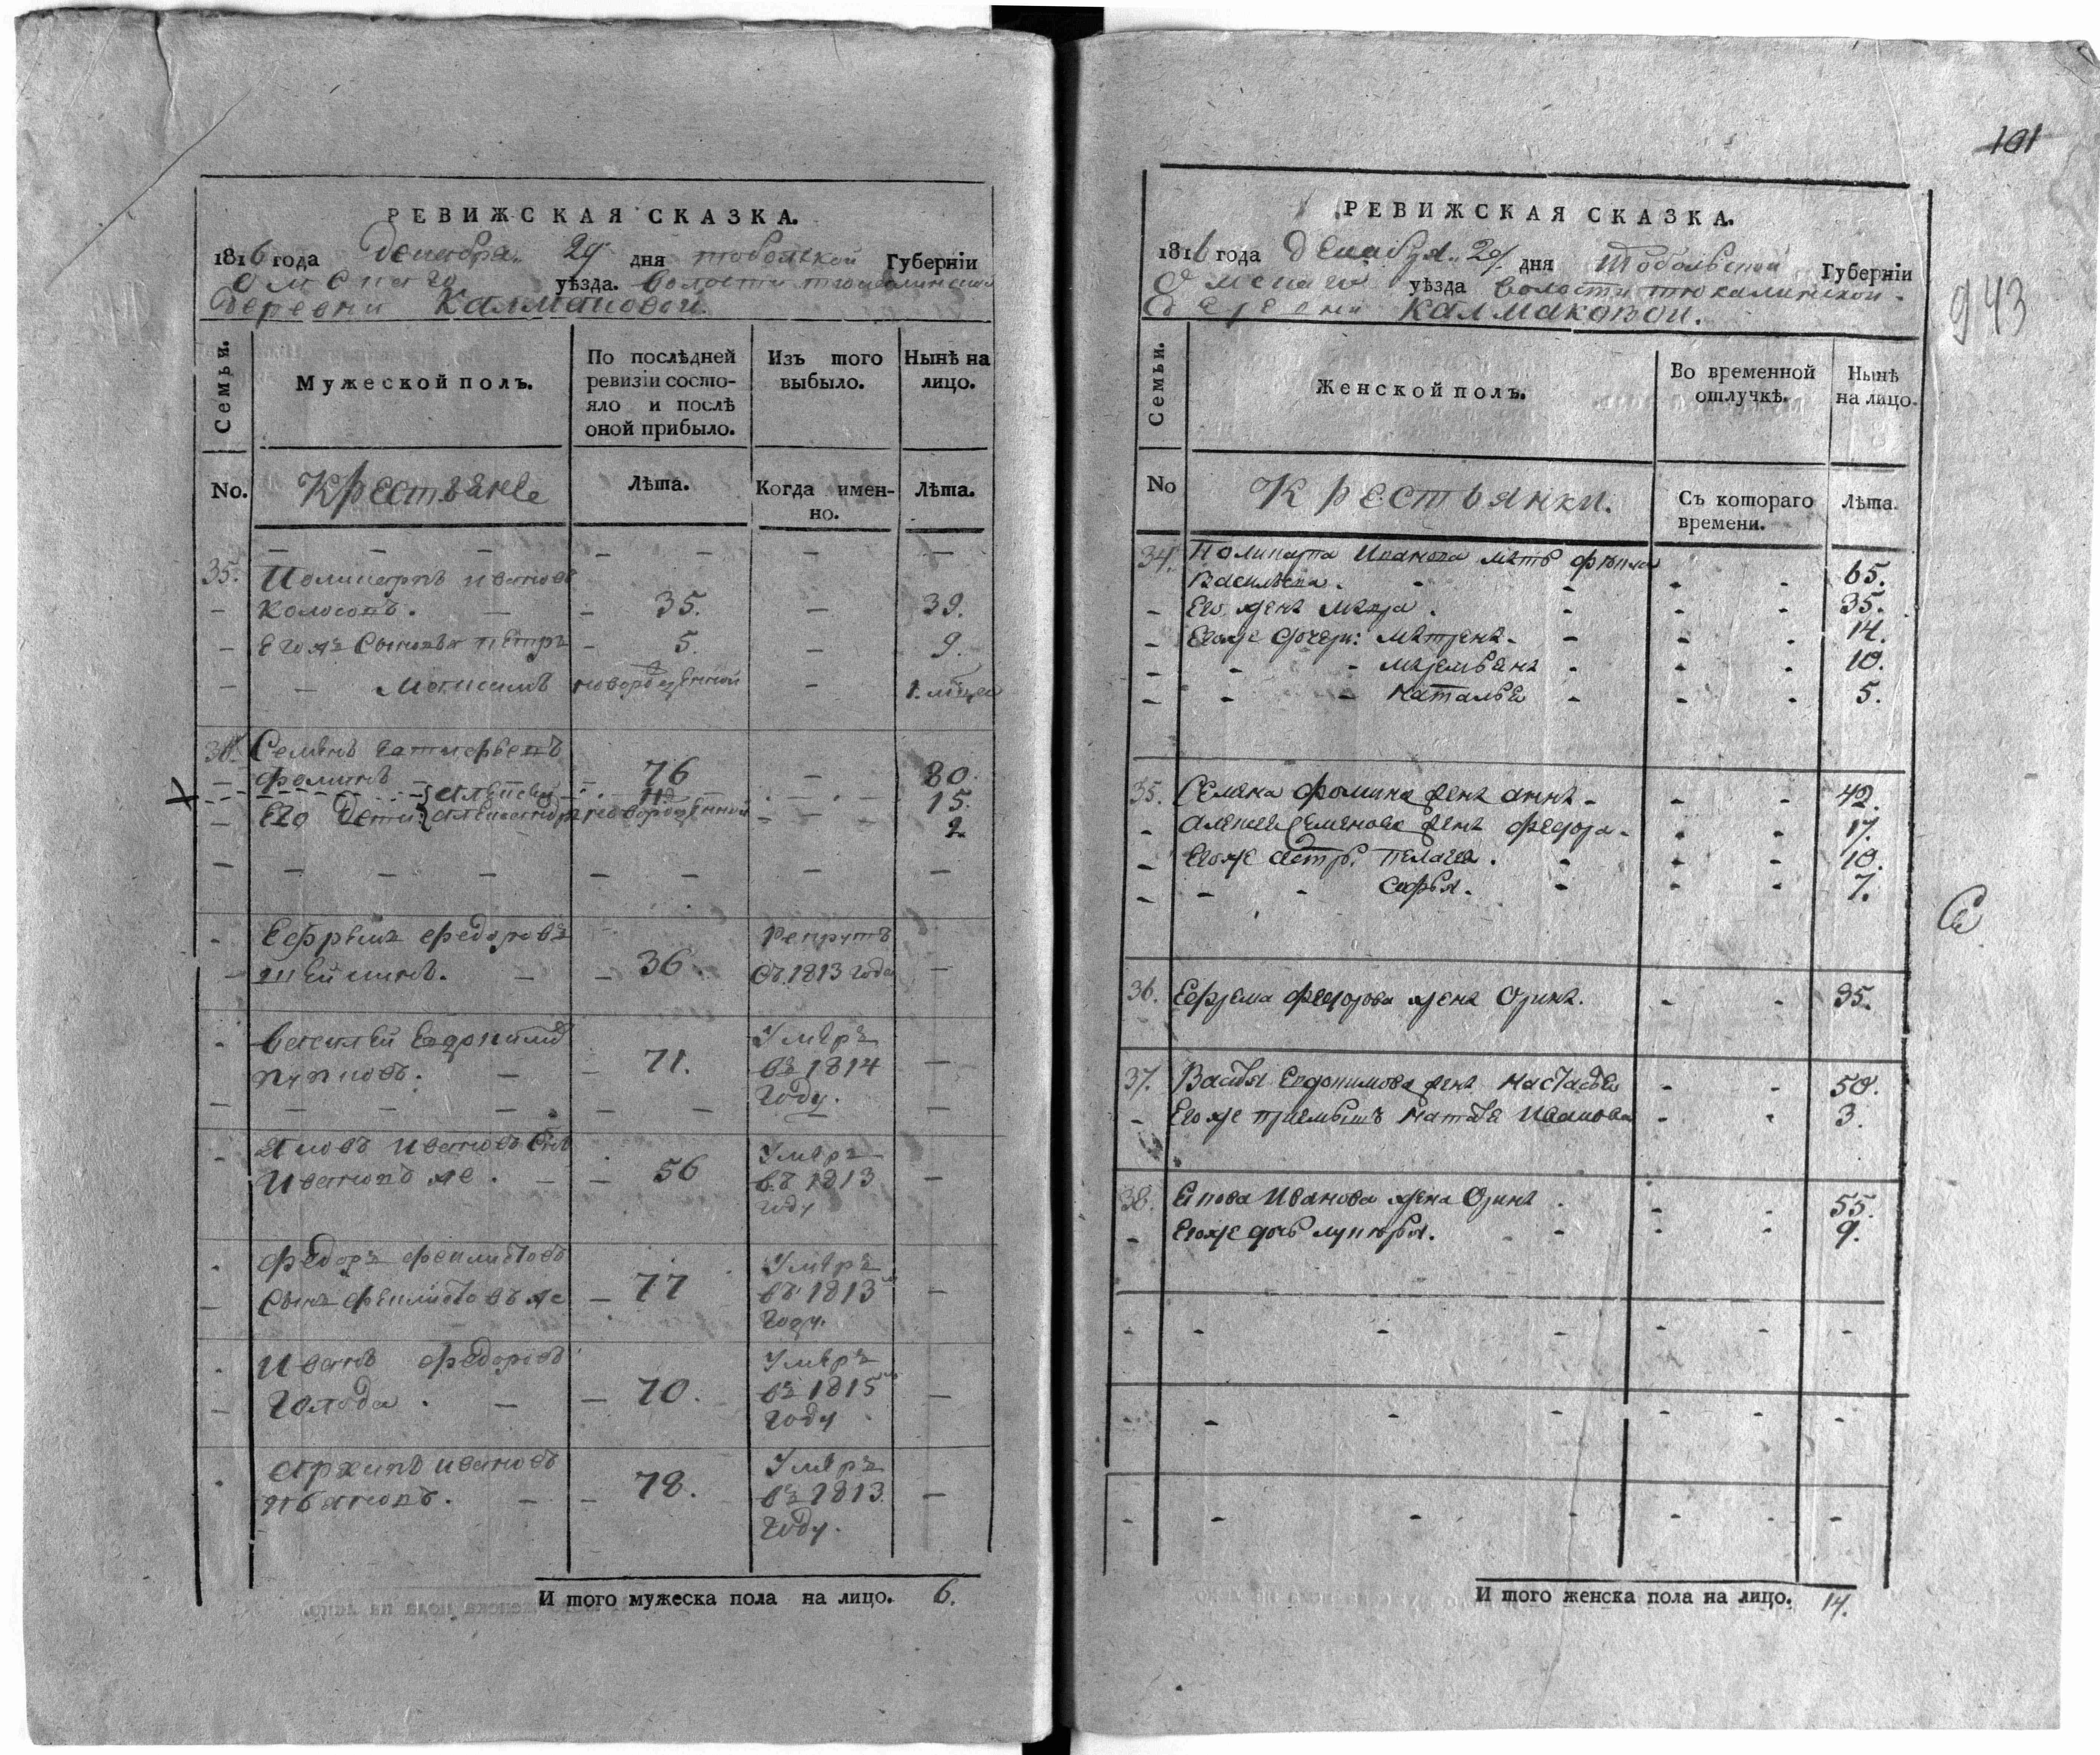 РЕВИЖСКАЯ СКАЗКА.
1816 года декабря 29 дня тобольской Губерніи
омскаго уѣзда. волости тюкалинской
деревни Калмаковой.
Семьи.
Мужеской полъ.
По послѣдней ревизіи состояло и послѣ оной прибыло.
Изъ того выбыло.
Нынѣ на лицо.
No. Крестьяне Лѣта. Когда именно. Лѣта.
35. Поликарпъ ивановъ
колосовъ. 35. 39.
Его жъ сыновья петръ 5. 9.
Максимъ новорожденной
Семенъ
Фоминъ 76 80.
алексей 11. 15.
Его дети: александръ новорожденной 2.
Ефремъ федоровъ рекрутъ
36. въ 1813 года
василей Евдокимовъ Умеръ
71. въ 1814
году.
Яковъ ивановъ сынъ Умеръ
ивановъ же. 56 въ 1813
году
федоръ феклистовъ Умеръ
сынъ феклистовъ же 77 въ 1813
году.
иванъ федоровъ Умеръ
Голода. 70. въ 1815
году
архипъ ивановъ Умеръ
78. въ 1813.
году.
И того мужеска пола на лицо. 6.
101
РЕВИЖСКАЯ СКАЗКА.
1816 года декабря 29 дня тобольской Губерніи
Омскаго уѣзда волости тюкалинской.
деревни Калмаковой.
943
Семьи.
Женской полъ.
Во временной отлучкѣ.
Нынѣ на лицо.
No Крестьянки. Съ котораго времени. Лѣта.
34. Поликарпа Иванова мать
Васильева. 65.
Его жена 35.
Егоже дочери: матрена 14.
маремьяна 10.
наталья 5.
35. Семена фомина жена анна 42.
алексея Семенова жена федора 17.
Егоже пелагея. 10.
софья. 7.
36. Ефрема федорова жена Орина. 35.
37. Василья Евдокимова жена настасья 50.
Егоже приемышъ наталья Иванова 3.
38. Якова Иванова жена Орина 55.
Егоже дочь лукерья. 9.
И того женска пола на лицо. 14.